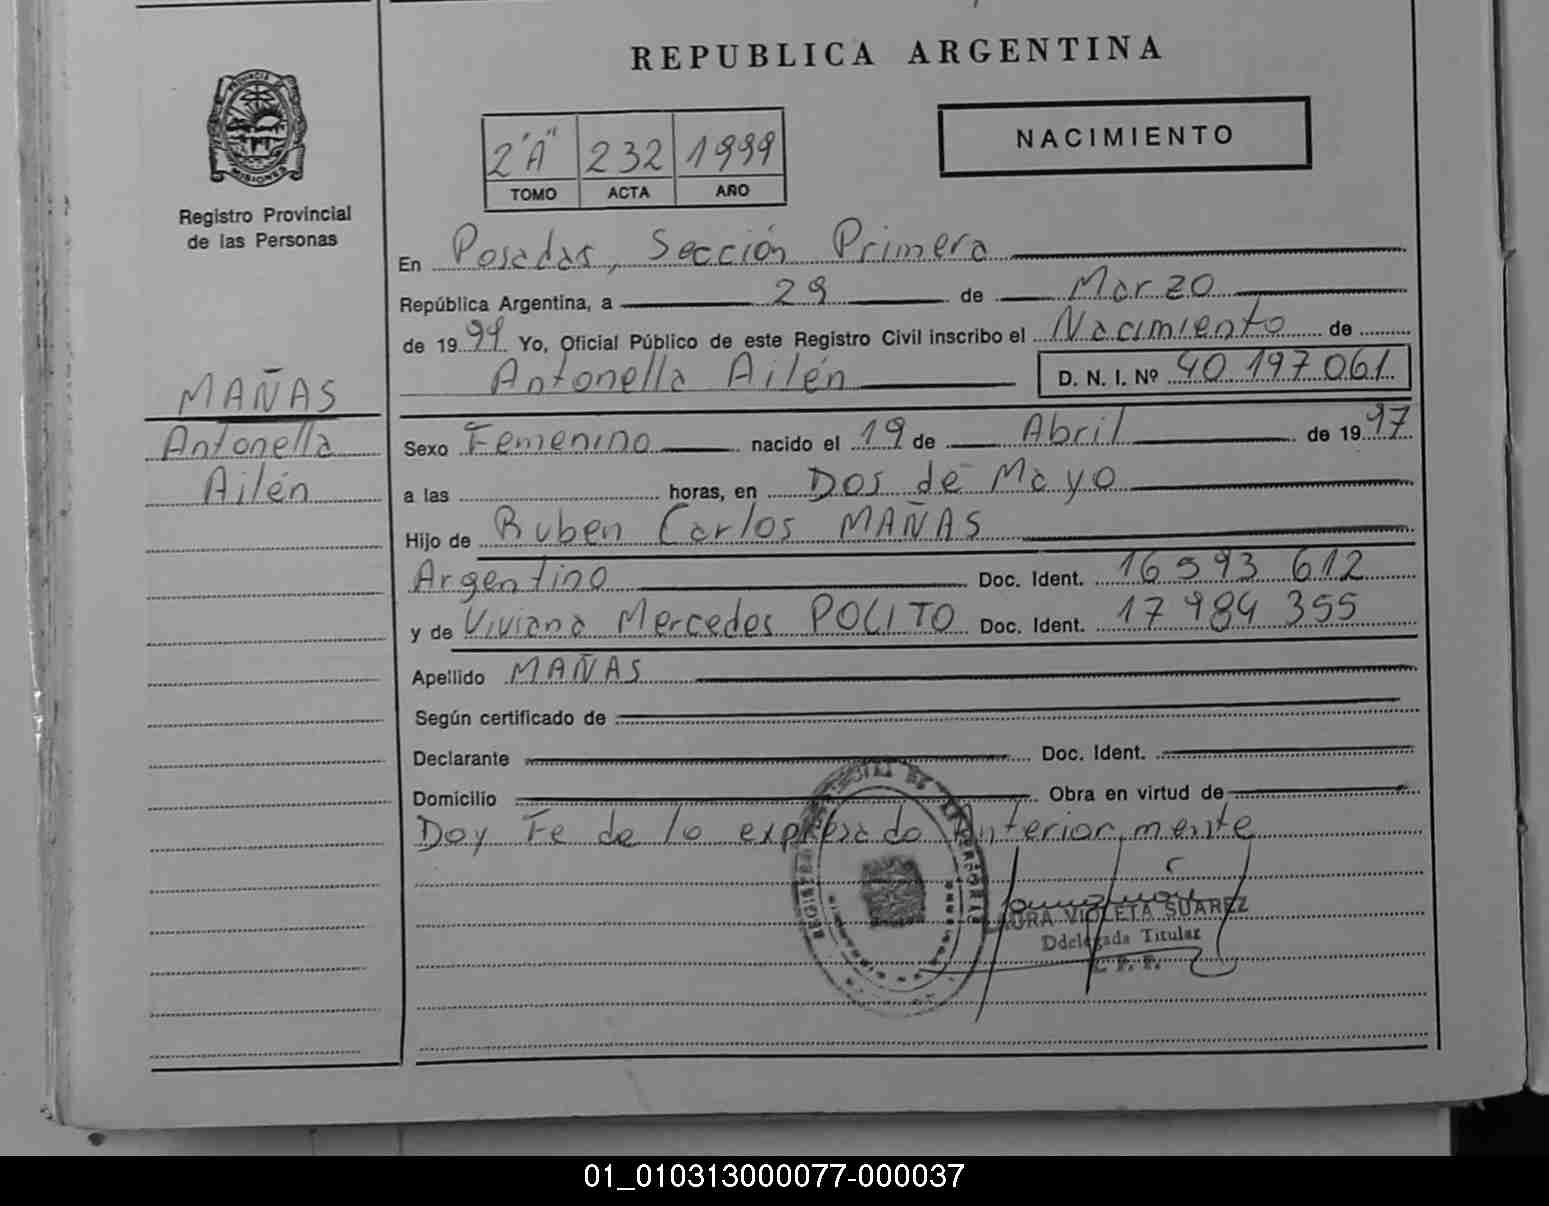 REPUBLICA ARGENTINA
PROVINCIA DE
MISIONES
Registro Provincial
de las Personas
2"A" 232 1999
TOMO ACTA AÑO
NACIMIENTO
En Posadas, Sección Primera
República Argentina, a 29 de Marzo
de 1999 Yo, Oficial Público de este Registro Civil inscribo el Nacimiento de
Antonella Ailén D. N. I. Nº 40 197 061
MAÑAS
Antonella
Ailén
Sexo Femenino nacido el 19 de Abril de 1997
a las horas, en Dos de Mayo
Hijo de Ruben Carlos MAÑAS
Argentino Doc. Ident. 16 593 612
y de Viviana Mercedes POLITO Doc. Ident. 17 984 355
Apellido MAÑAS
Según certificado de
Declarante Doc. Ident.
Domicilio Obra en virtud de
Doy Fe de lo expresado anteriormente
LAURA VIOLETA SUAREZ
Ddelegada Titular
01_010313000077-000037